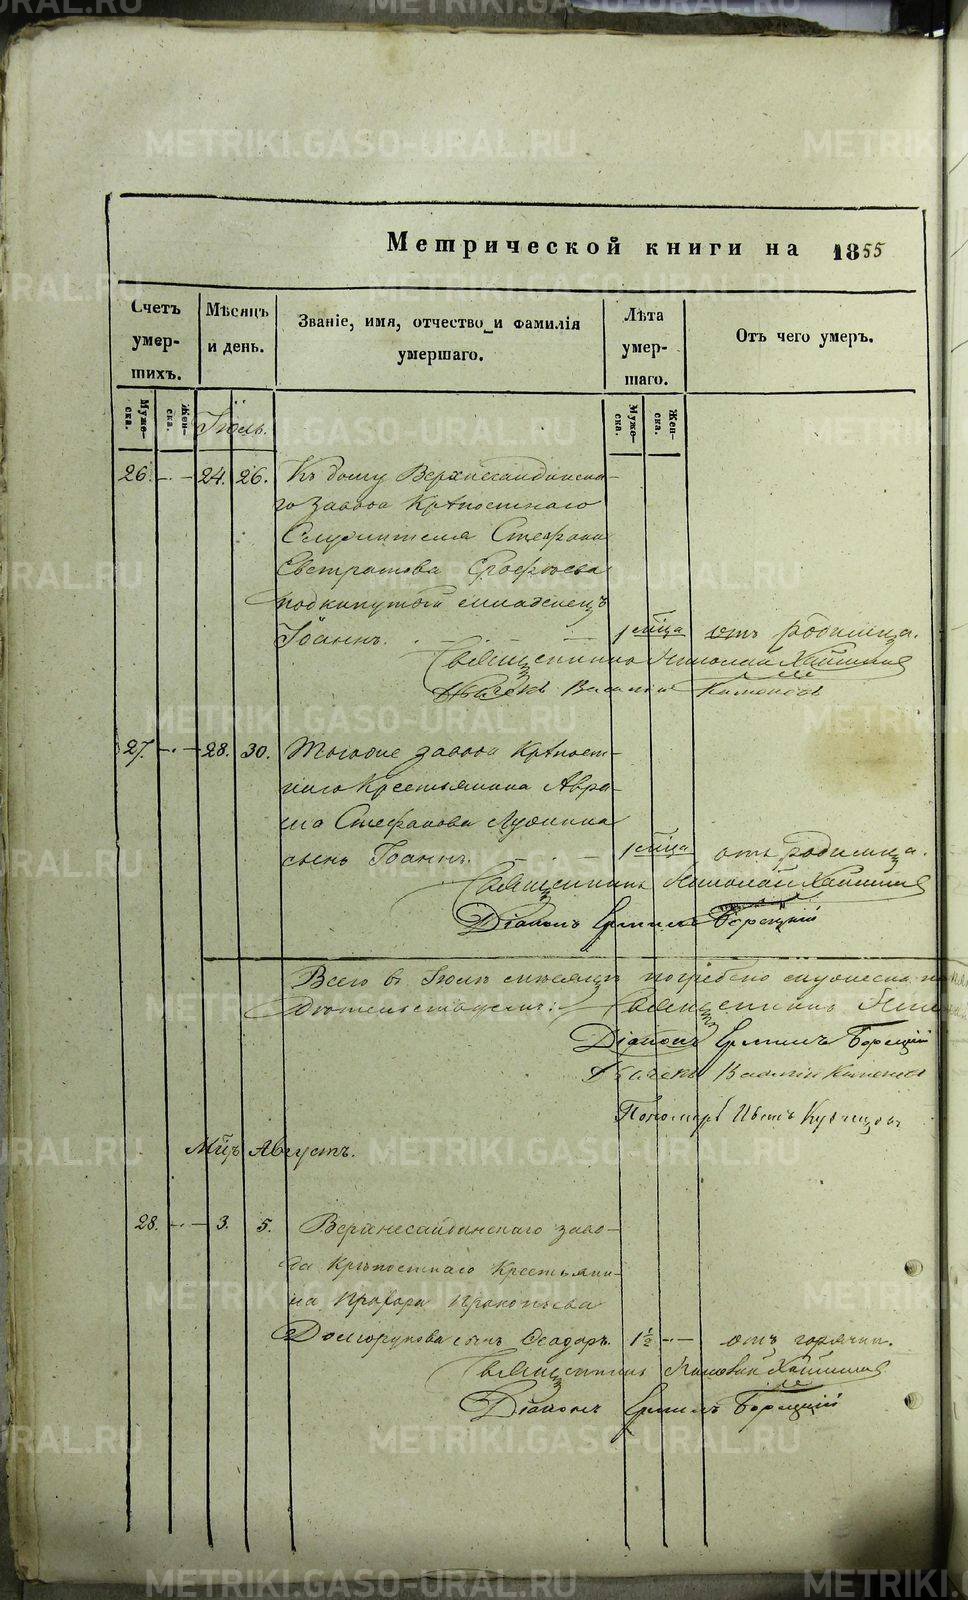 Метрической книги на 1855
Счетъ умер-шихъ.
Мѣсяцъ и день.
Званіе, имя, отчество и фамилія умершаго.
Лѣта умер-шаго.
Отъ чего умеръ.
Муже-ска.
Жен-ска.
Муже-ска.
Жен-ска.
Іюль.
26. - - 24. 26. Къ дому Верхнесалдинска-
го завода Крѣпостнаго
Служителя Стефана
Евстратова Ерофѣева
подкинутой младенецъ
Іоаннъ. 1 мѣсца отъ родимца.
Священникъ Николай
Дьячекъ Василій
27. - - 28. 30. Тогоже завода Крѣпост-
наго Крестьянина Авра-
ма Стефанова
сынъ Іоаннъ. 1 мѣсца отъ родимца.
Священникъ Николай
Діаконъ Ермилъ Борецкій
Всего въ Іюлѣ мѣсяцѣ погребено мужеска по-
Священникъ
Діаконъ Ермилъ Борецкій
Дьячекъ Василій
Пономарь
Мцъ Августъ.
28. - - 3. 5. Верхнесалдинскаго заво-
да Крѣпостнаго Крестьяни-
на Прокопьева
Долгорукова сынъ Ѳеодоръ. 1½ - - отъ горячки.
Священникъ Николай
Діаконъ Ермилъ Борецкій
METRIKI.GASO-URAL.RU